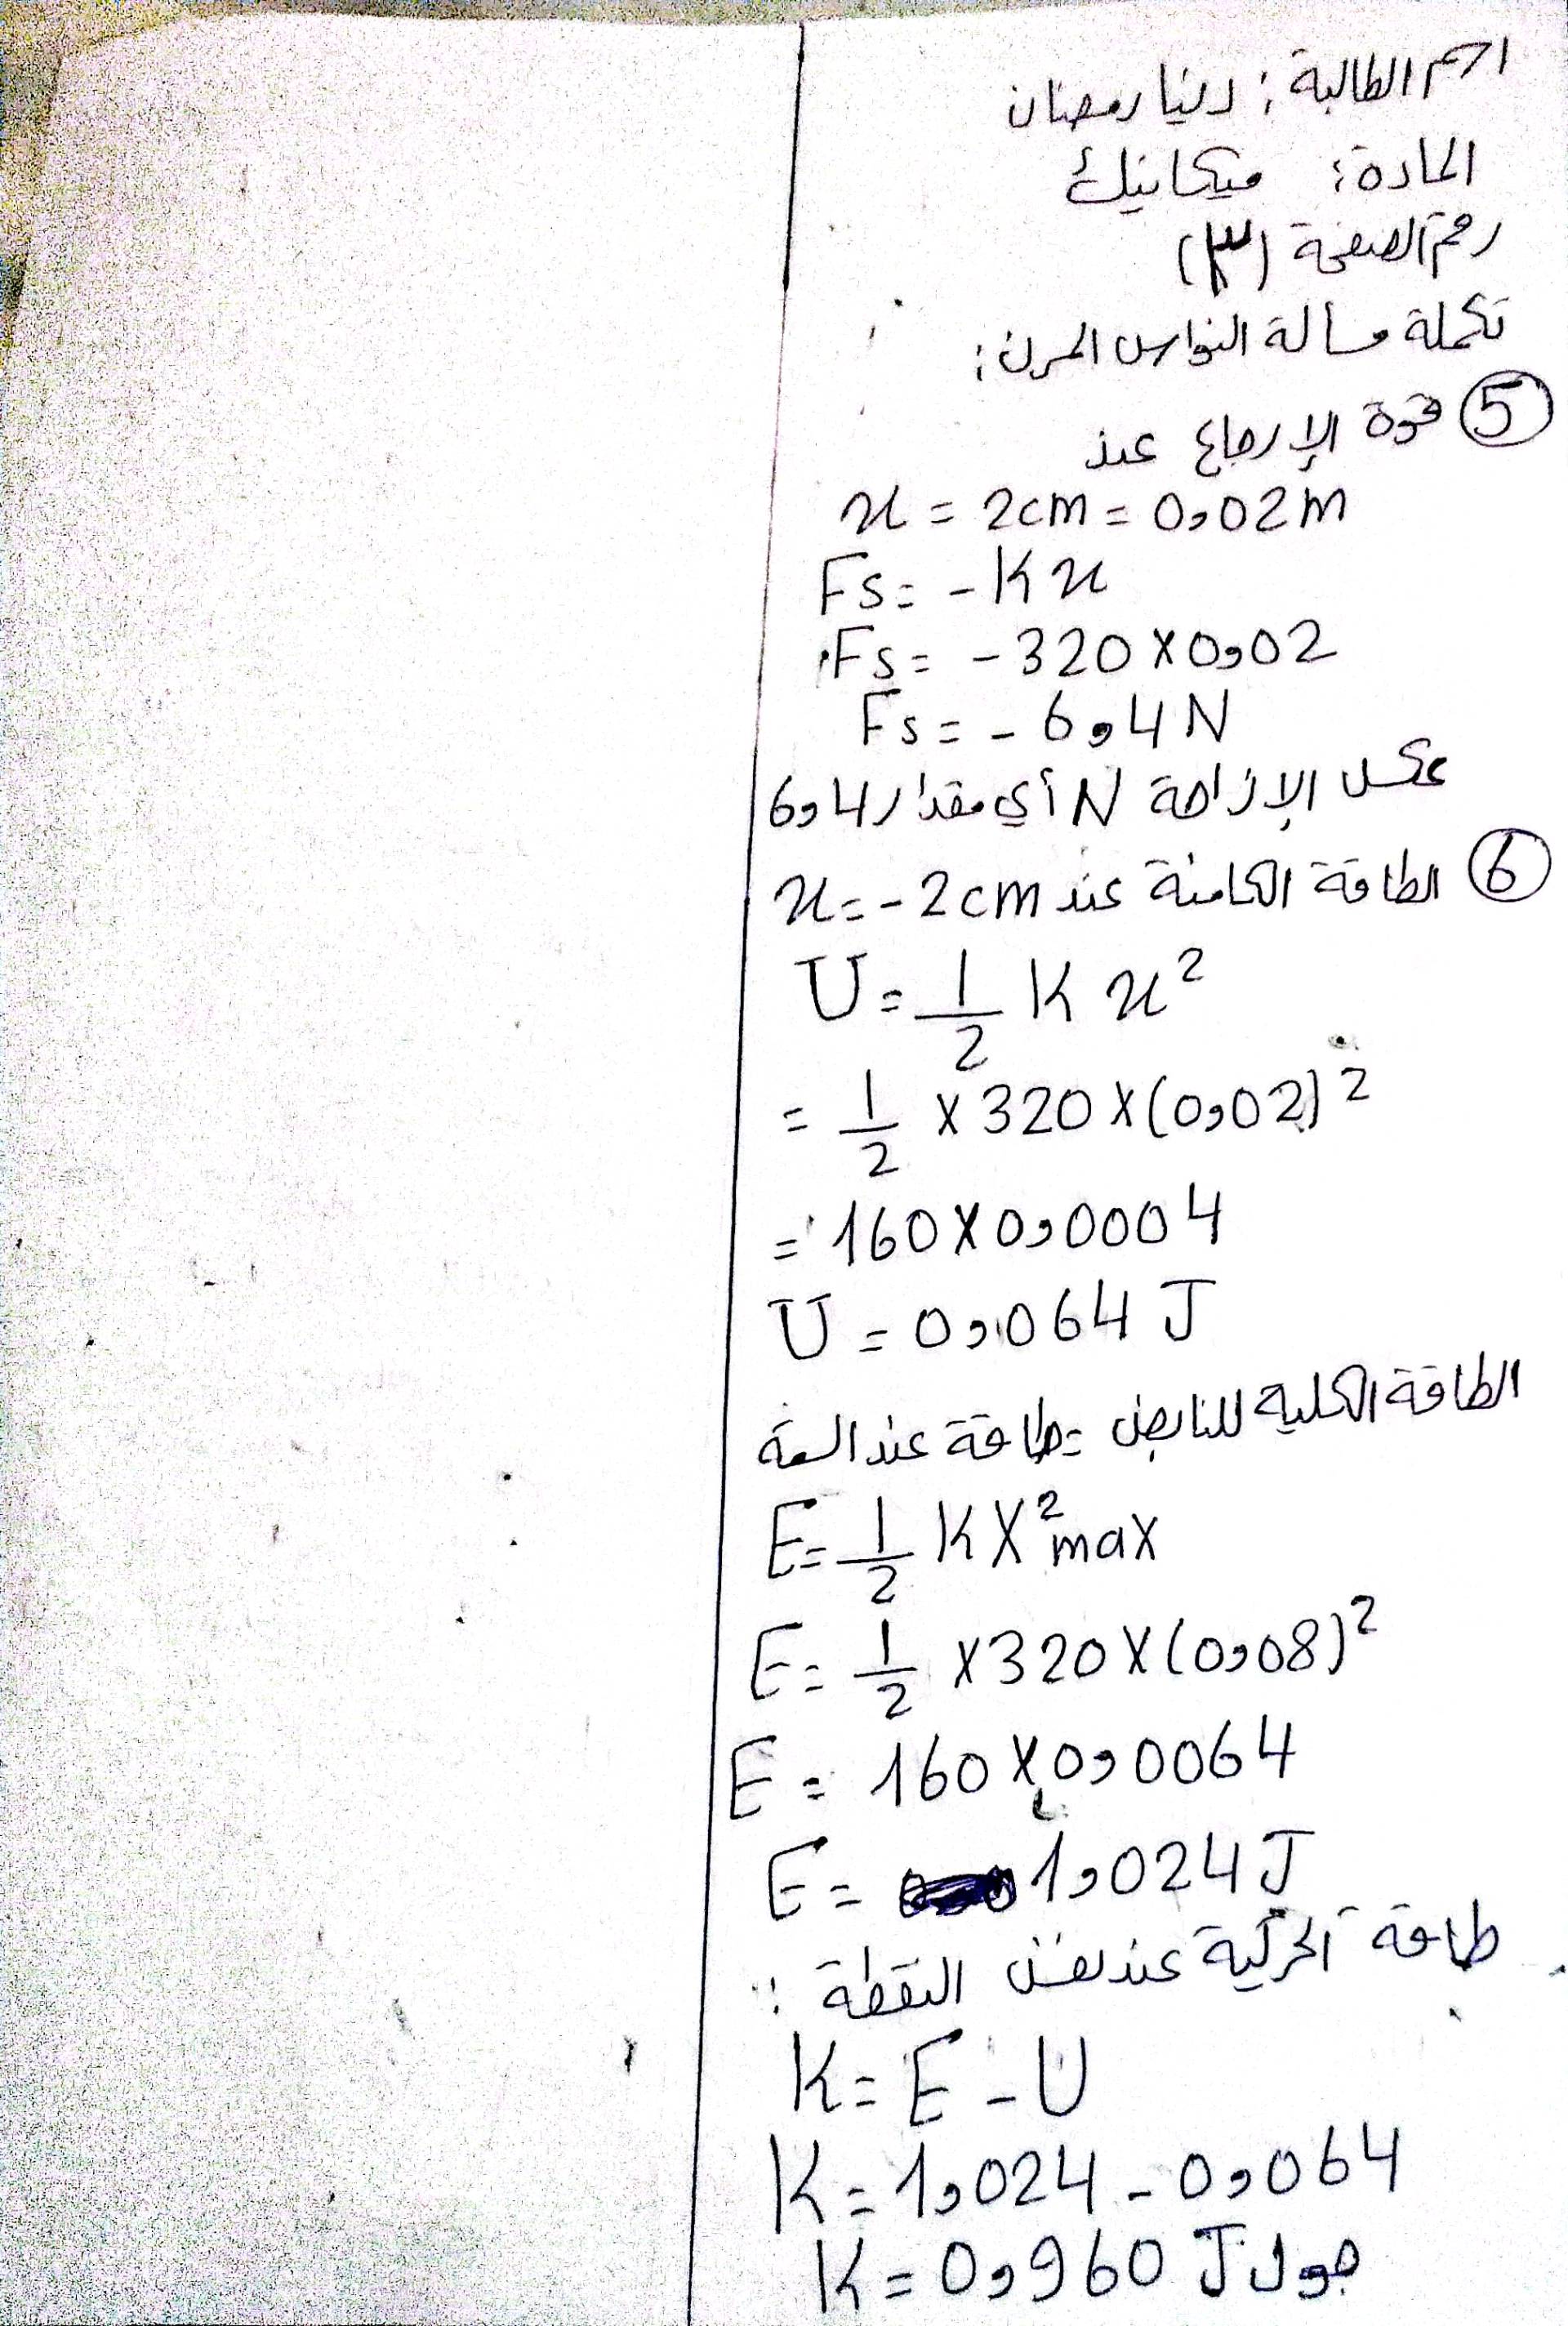 اسم الطالبة : دنيا رمضان
المادة : ميكانيك
رقم الصفحة (٣)
تكملة مسألة النواس المرن :
5 قوة الإرجاع عند
x = 2cm = 0,02m
Fs = - K x
Fs = - 320 x 0,02
Fs = - 6,4 N
عكس الإزاحة N أي مقدار 6,4
6 الطاقة الكامنة عند x = - 2cm
U = 1/2 K x²
= 1/2 x 320 x (0,02)²
= 160 x 0,0004
U = 0,064 J
الطاقة الكلية للنابض = طاقة عند السعة
E = 1/2 K X²max
E = 1/2 x 320 x (0,08)²
E = 160 x 0,0064
E = 1,024 J
طاقة الحركية عند نفس النقطة :
K = E - U
K = 1,024 - 0,064
K = 0,960 J جول